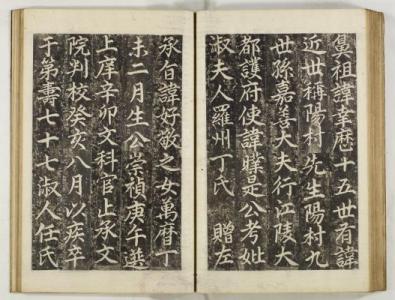 鼻祖諱幸歷十五世有諱
近世稱陽村先生陽村九
世孫嘉善大夫行江陵大
都護府使諱是公考妣
淑夫人羅州丁氏 贈左
承旨諱好敬之女萬曆丁
未二月生公崇禎庚午進
上庠辛卯文科官止承文
院判校癸亥八月以疾卒
于第壽七十七淑人任氏